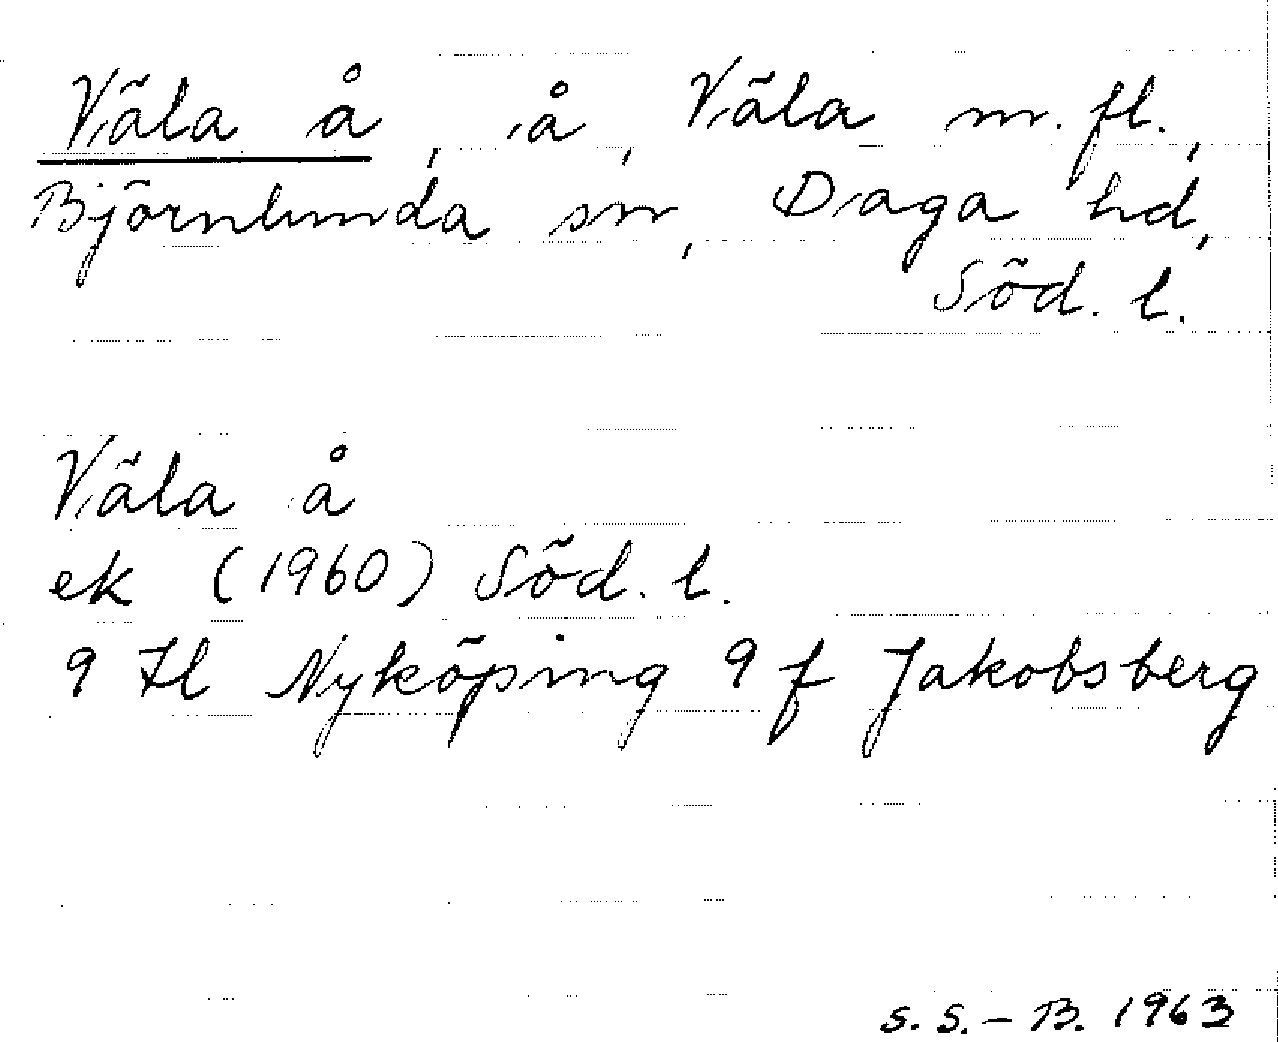 Väla å, å, Väla m.fl.,
Björnlunda sn, Daga hd,
Söd. l.
Väla å
ek (1960) Söd. l.
9 H Nyköping 9 f Jakobsberg
S. S. – B. 1963